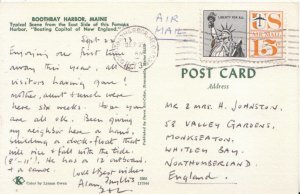 BOOTHBAY HARBOR, MAINE
Typical Scene from the East Side of this Famous
Harbor, "Boating Capital of New England."
Sept. 24
Enjoying our first time
away this year, all
visitors having gone!
Mother, aunt & uncle were
here six weeks. Hope you
are all ok. Been giving
my neighbor here a hand
building a dock + float that
will rise + fall with the tide
(8'-11'). He has a 12 outboard
+ a canoe. Love & best wishes
Alan, Phyllis
Color by
AIR
MAIL
LIBERTY FOR ALL
US
AIR MAIL
15¢
POST CARD
Address
MR & MRS. H. JOHNSTON.
53 VALLEY GARDENS,
MONKSEATON
WHITLEY BAY
NORTHUMBERLAND.
England.